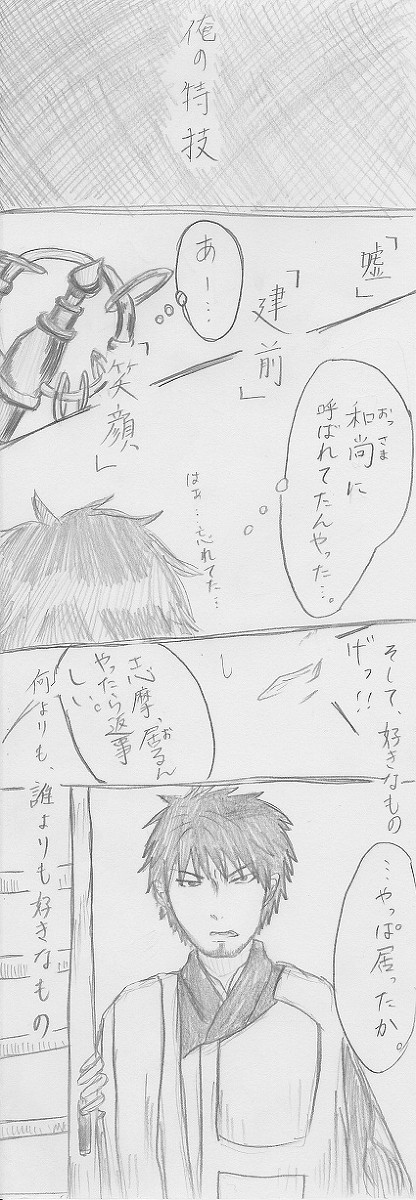 俺の特技
「嘘」
「建前」
「笑顔」
あー…
和尚に
おっさま
呼ばれてたんやった…。
はぁ…忘れてた…
そして、好きなもの
げっ!!
志摩、居るん
おる
やったら返事
しい。
何よりも、誰よりも好きなもの
…やっぱ居ったか。